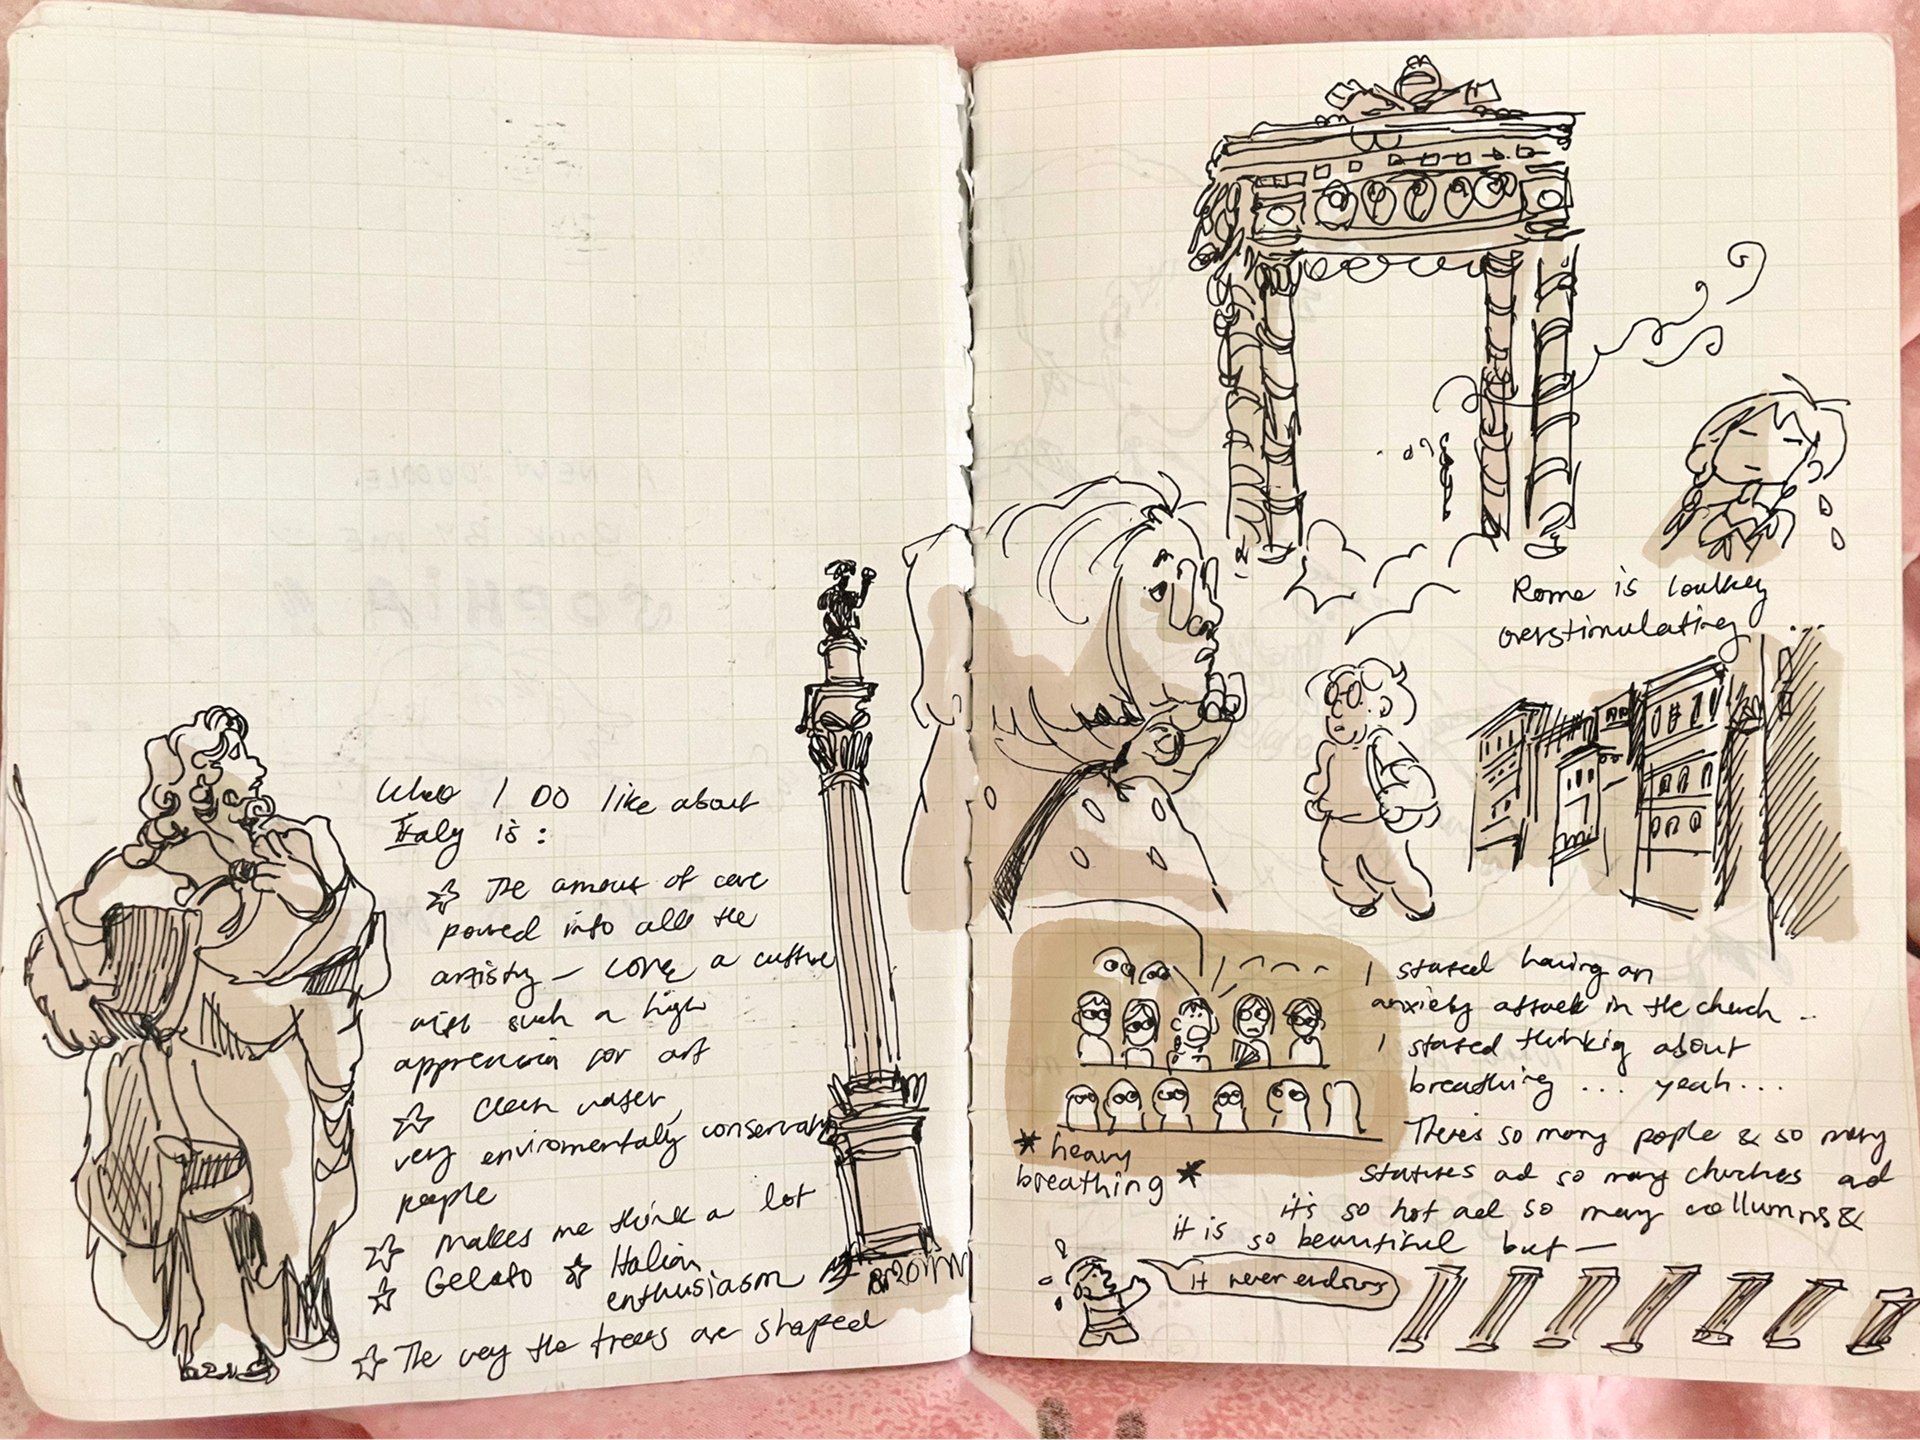 What I DO like about
Italy is:
☆ The amout of care
poured into all the
artistry – love a culture
with such a high
appreciation for art
☆ Clean water,
very enviromentaly conservative
people
☆ Makes me think a lot
☆ Gelato ☆ Italian
enthusiasm
☆ The way the trees are shaped
Rome is lowkey
overstimulating...
I stated having an
anxiety attack in the church..
I stated thinkig about
breathing ... yeah...
*heavy
breathing*
Theres so many people & so many
statues ad so many churches ad
it's so hot ad so many collumns &
it is so beautiful but —
it never endssss